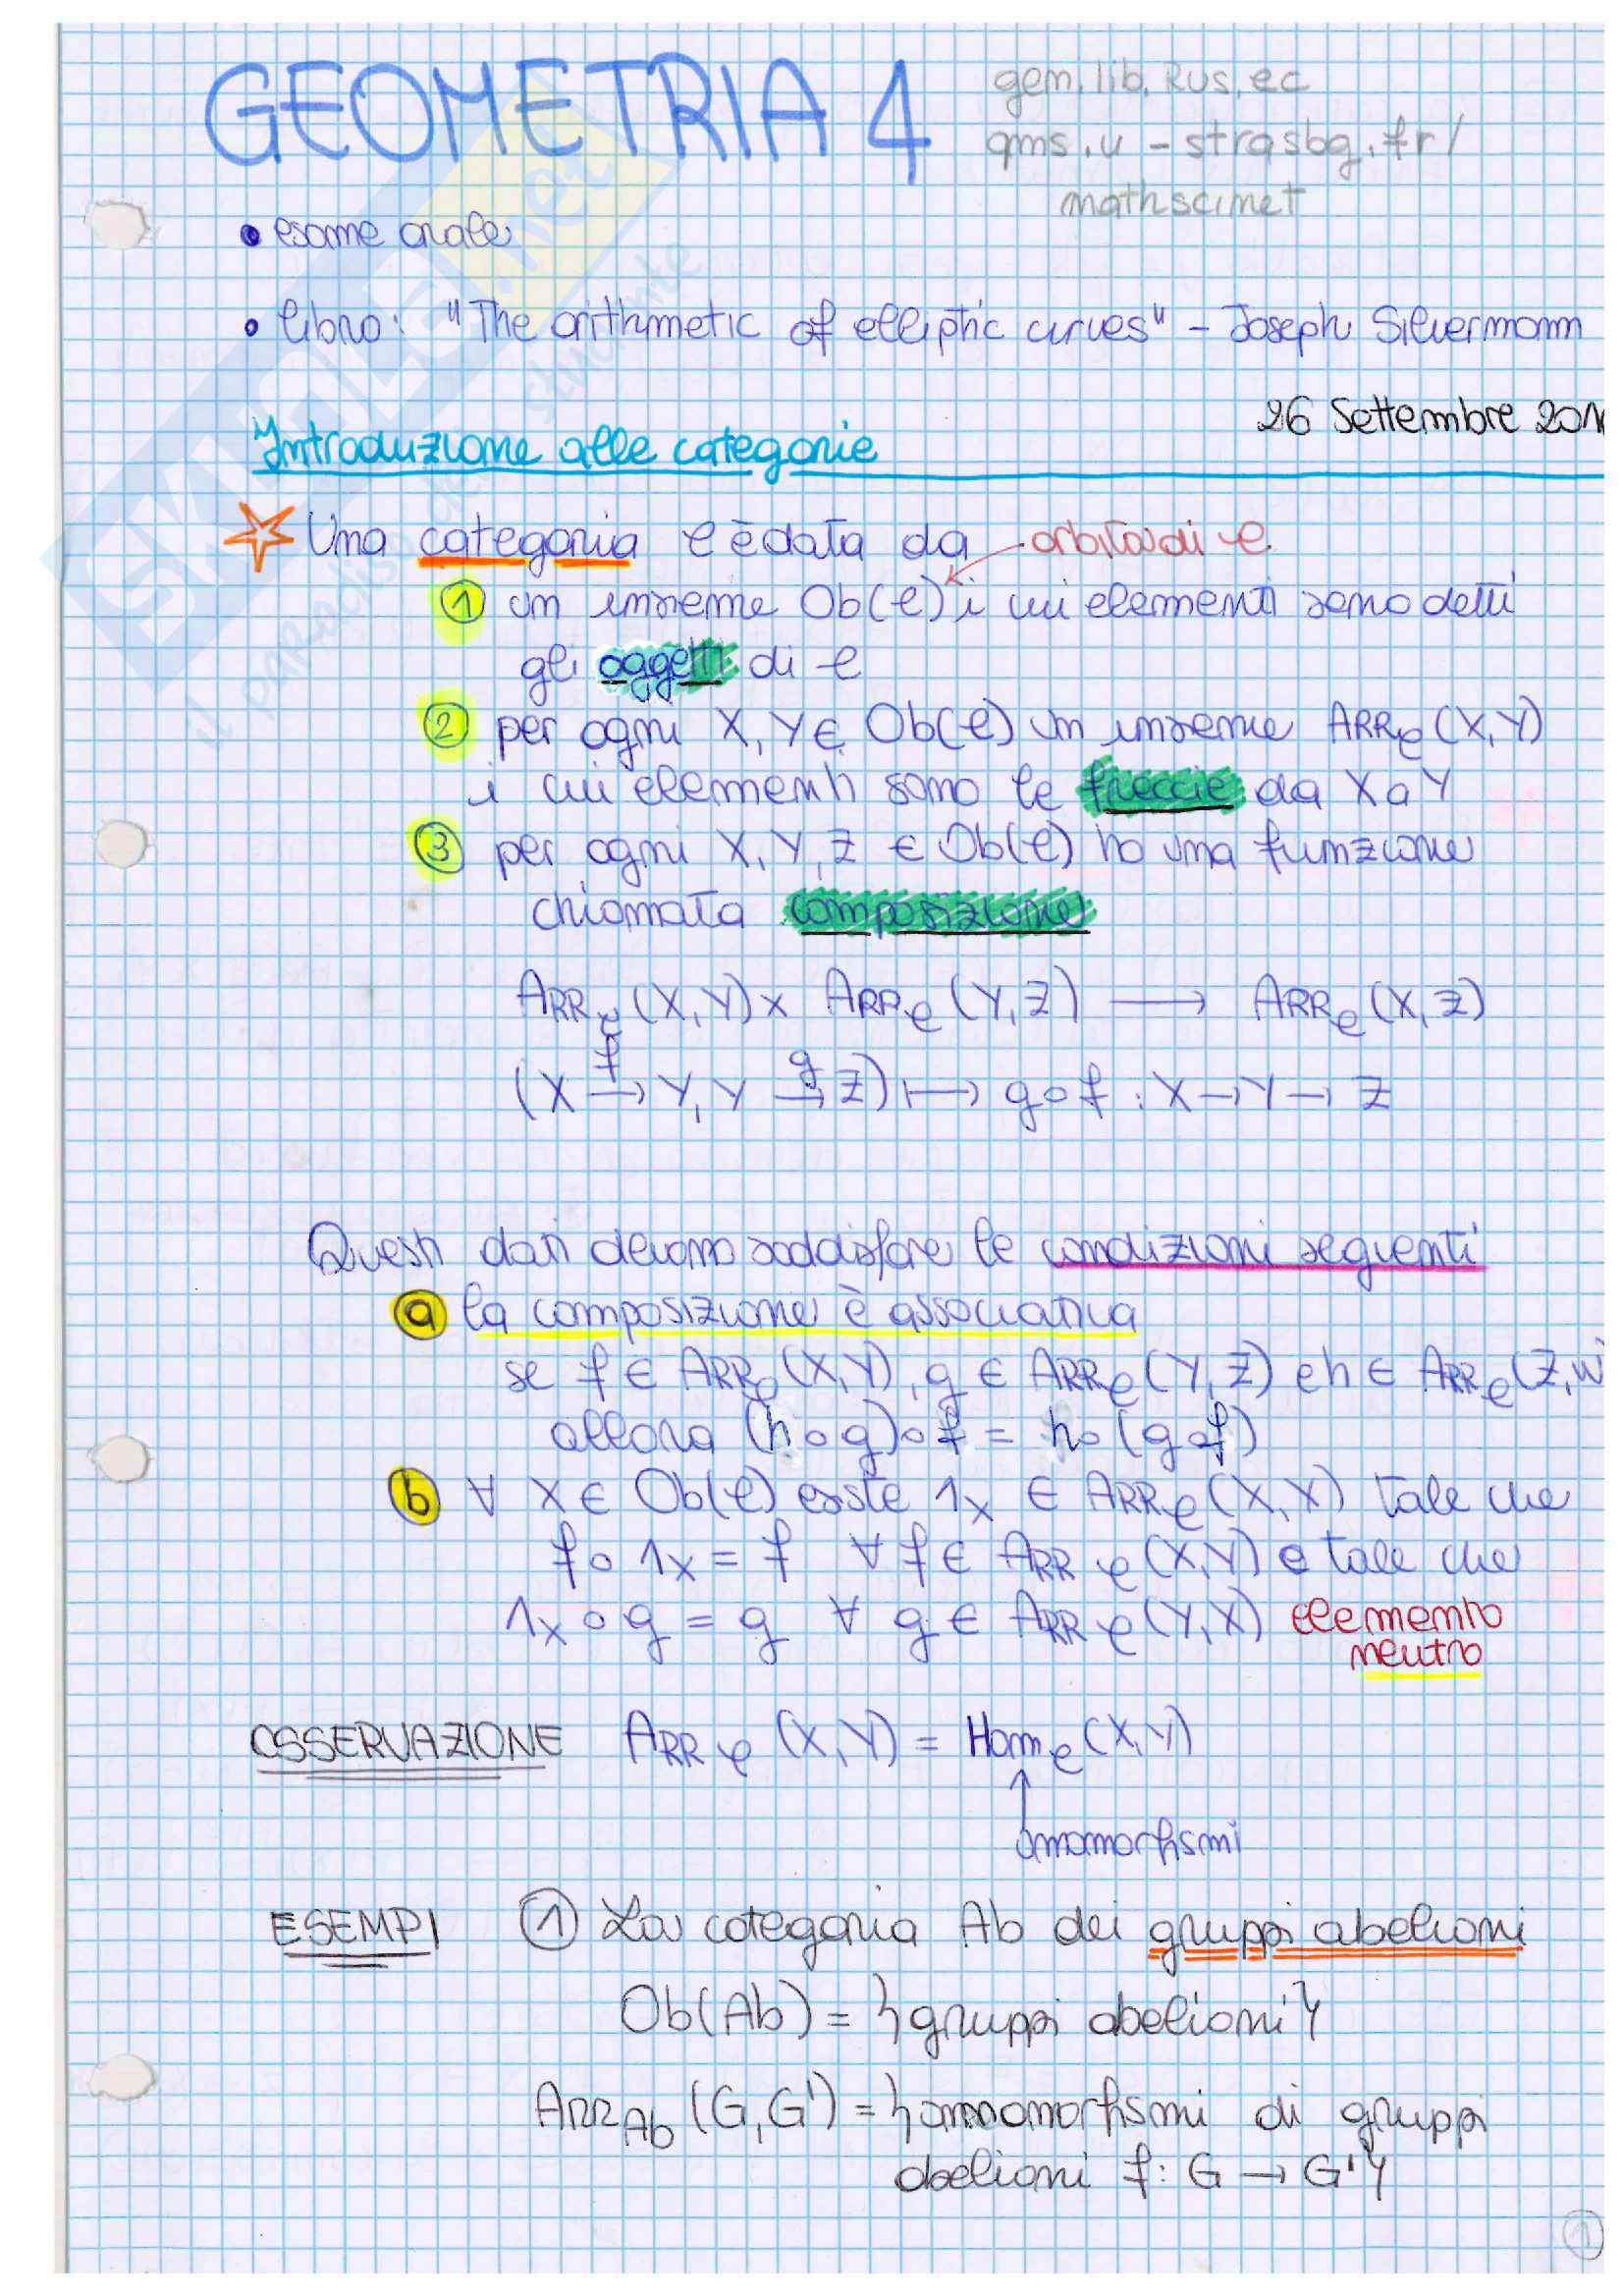 GEOMETRIA 4
gen.lib.rus.ec
qms.u-strasbg.fr/
mathscinet
• esame orale
• libro: "The arithmetic of elliptic curves" - Joseph Silvermann
26 Settembre 201
Introduzione alle categorie
Una categoria C è data da
di C
① un insieme Ob(C) i cui elementi sono detti
gli oggetti di C
② per ogni X, Y ∈ Ob(C) un insieme ARR_C (X,Y)
i cui elementi sono le freccie da X a Y
③ per ogni X, Y, Z ∈ Ob(C) ho una funzione
chiamata composizione
ARR_C (X,Y) x ARR_C (Y,Z) ⟶ ARR_C (X,Z)
(X →^f Y, Y →^g Z) ⟼ g∘f : X → Y → Z
Questi dati devono soddisfare le condizioni seguenti
ⓐ la composizione è associativa
se f ∈ ARR_C (X,Y), g ∈ ARR_C (Y,Z) e h ∈ ARR_C (Z,W
allora (h∘g)∘f = h∘(g∘f)
ⓑ ∀ X ∈ Ob(C) esiste 1_X ∈ ARR_C (X,X) tale che
f∘1_X = f ∀ f ∈ ARR_C (X,Y) e tale che
1_X∘g = g ∀ g ∈ ARR_C (Y,X) elemento
neutro
OSSERVAZIONE ARR_C (X,Y) = Hom_C (X,Y)
↑
omomorfismi
ESEMPI ① La categoria Ab dei gruppi abeliani
Ob(Ab) = {gruppi abeliani}
ARR_Ab (G,G') = {omomorfismi di gruppi
abeliani f: G → G'}
1
SKUOLA.net
il paradiso dello studente